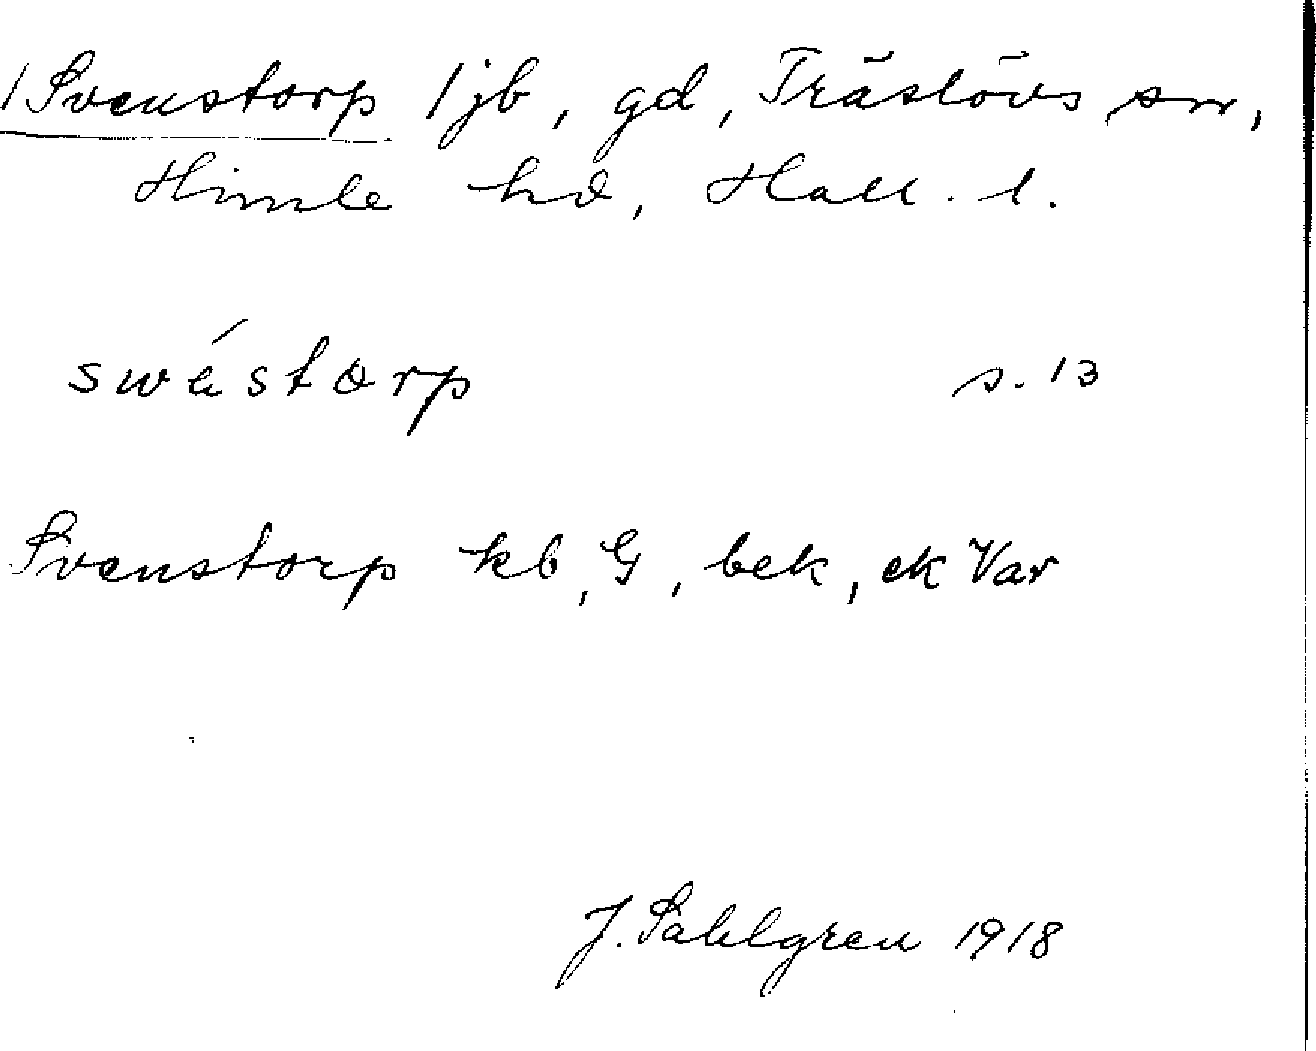 /Svenstorp/jb, gd, Träslövs sn,
Himle hd, Hall. l.
swéstorp s. 13
Svenstorp kb, G, bek, ek Var
J. Sahlgren 1918